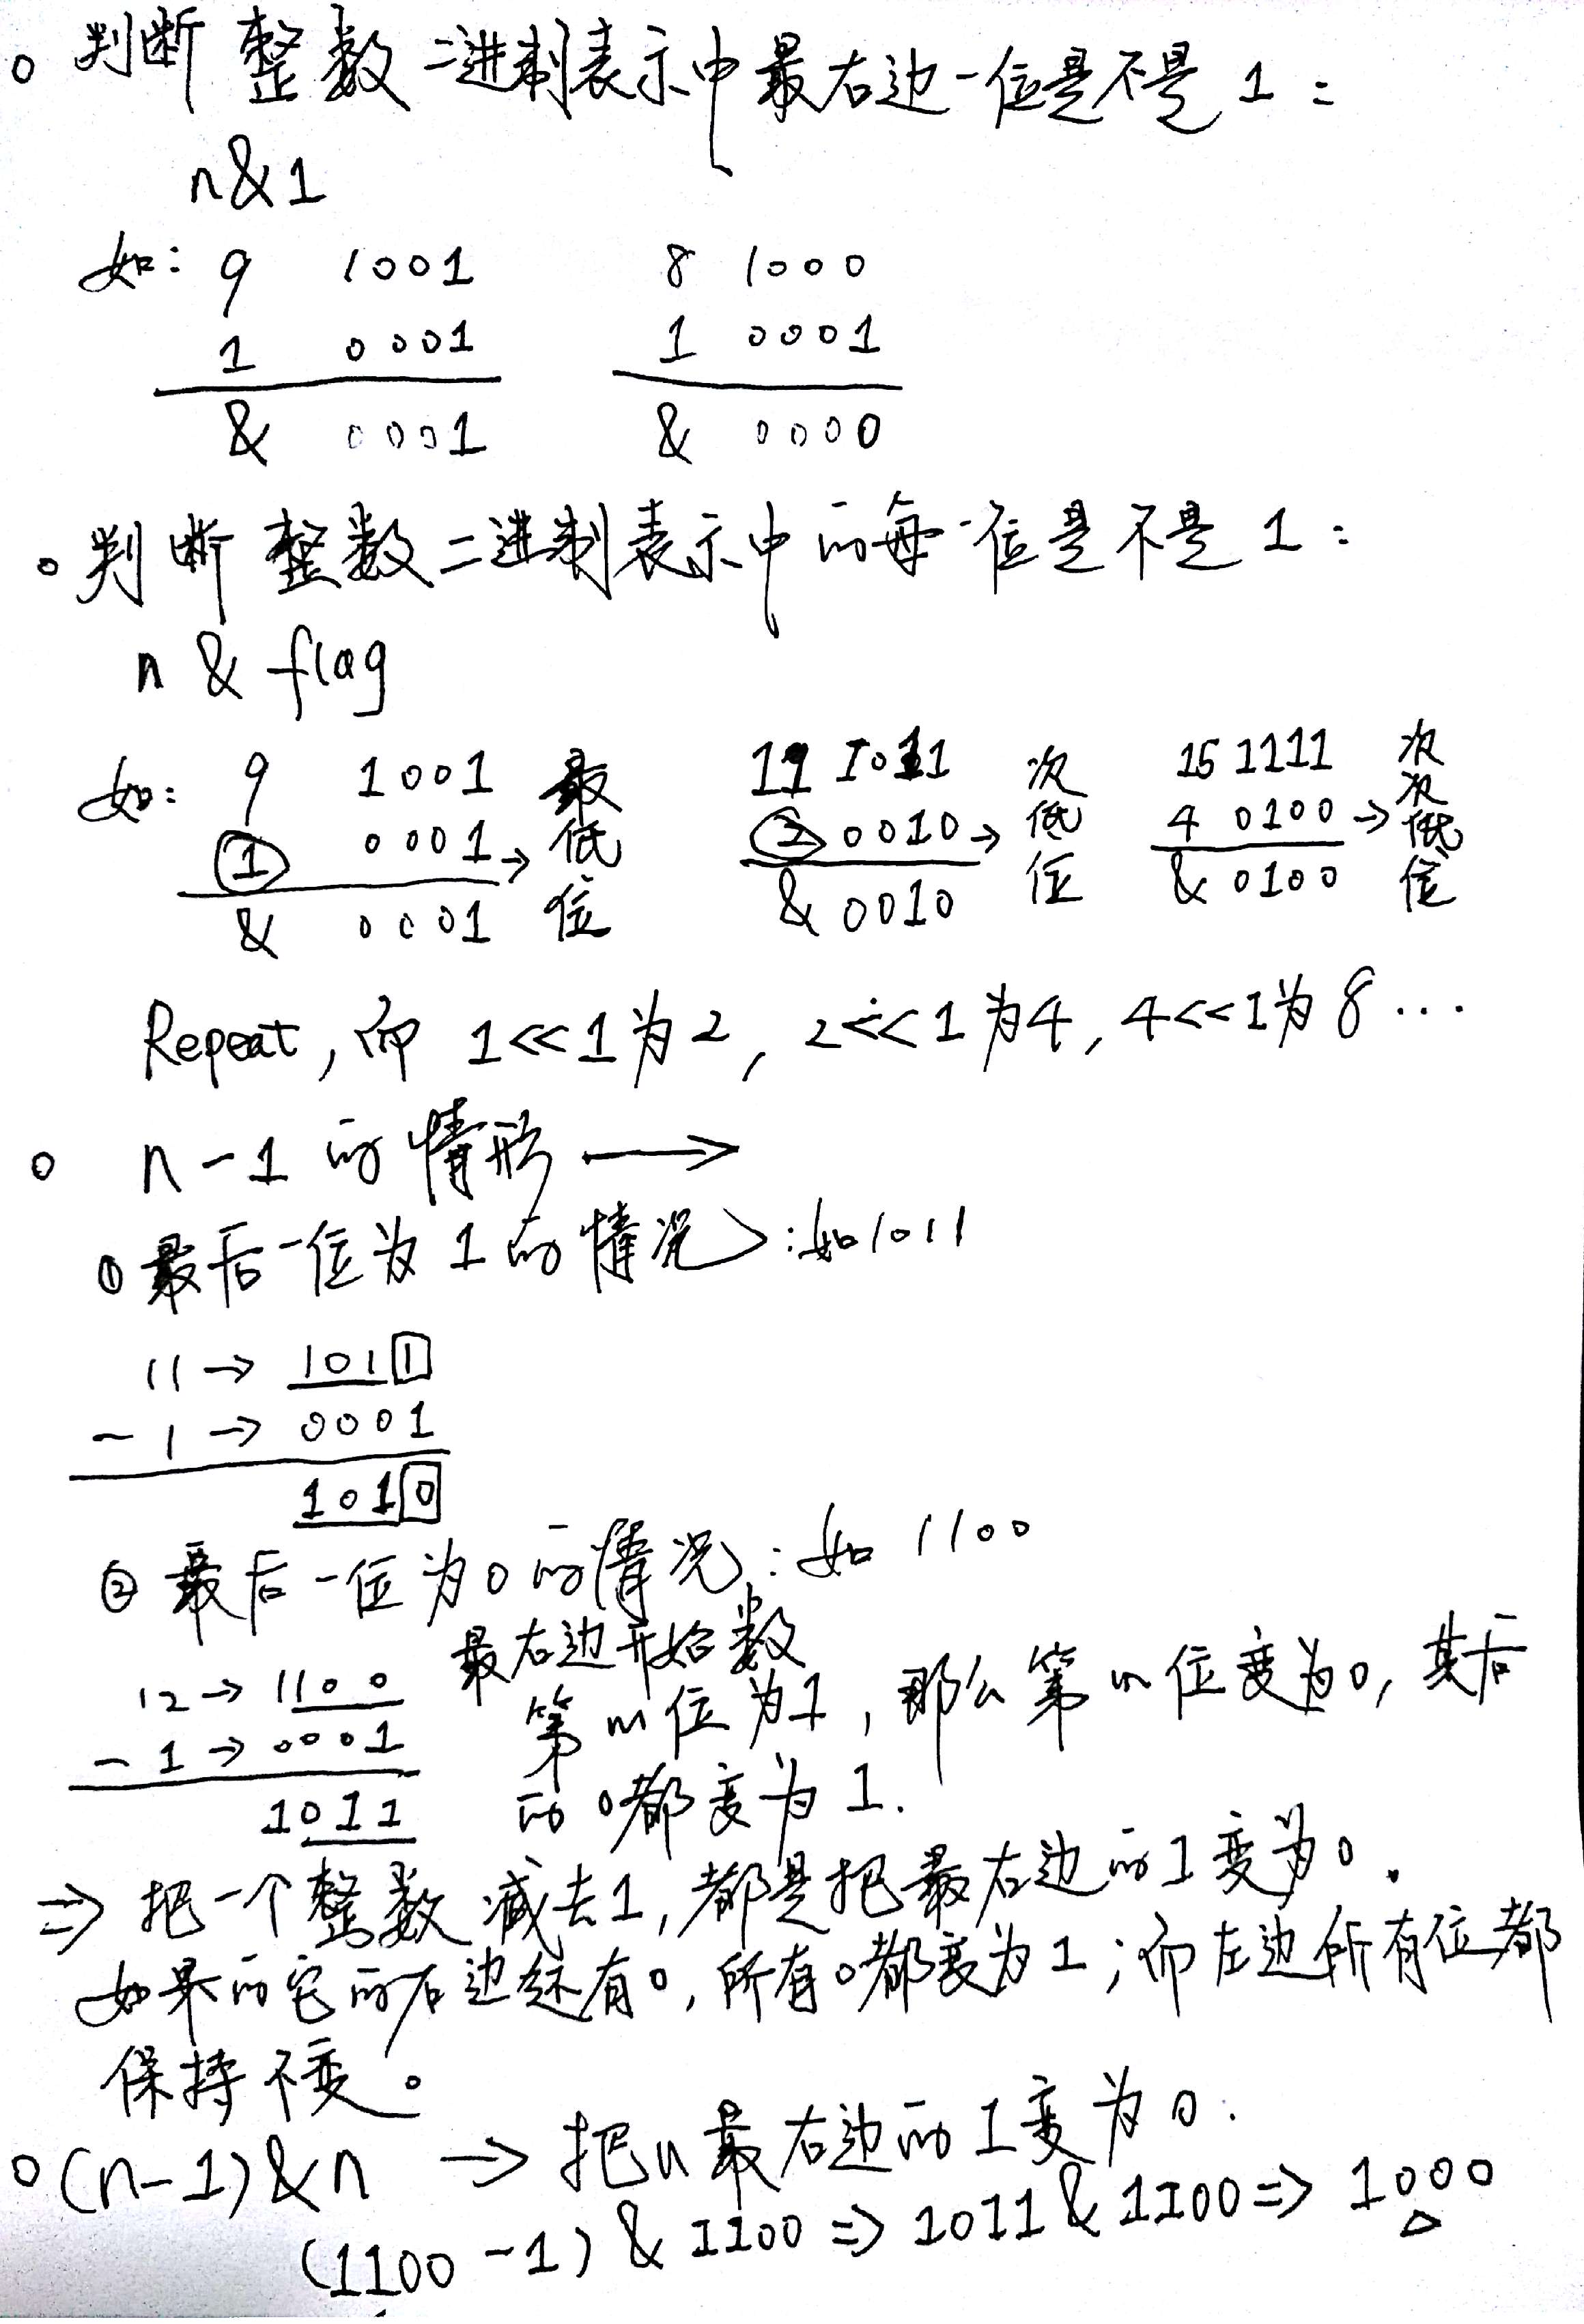 。判断整数二进制表示中最右边一位是不是1:
n&1
如: 9 1001 8 1000
1 0001 1 0001
& 0001 & 0000
。判断整数二进制表示中的每一位是不是1:
n & flag
如: 9 1001 最低位 11 1011 次低位 15 1111 次次低位
① 0001→ ② 0010→ 4 0100→
& 0001 & 0010 & 0100
Repeat,而 1<<1为2, 2<<1为4, 4<<1为8…
。 n-1的情形→
①最后一位为1的情况:如1011
11→1011
-1→0001
1010
②最后一位为0的情况:如1100
最右边开始数
12→1100 第m位为1,那么第m位变为0,其后
-1→0001
1011 的0都变为1.
⇒把一个整数减去1,都是把最右边的1变为0.
如果的它的右边还有0,所有0都变为1;而左边所有位都
保持不变。
。(n-1)&n → 把n最右边的1变为0.
(1100-1)&1100⇒1011&1100⇒1000